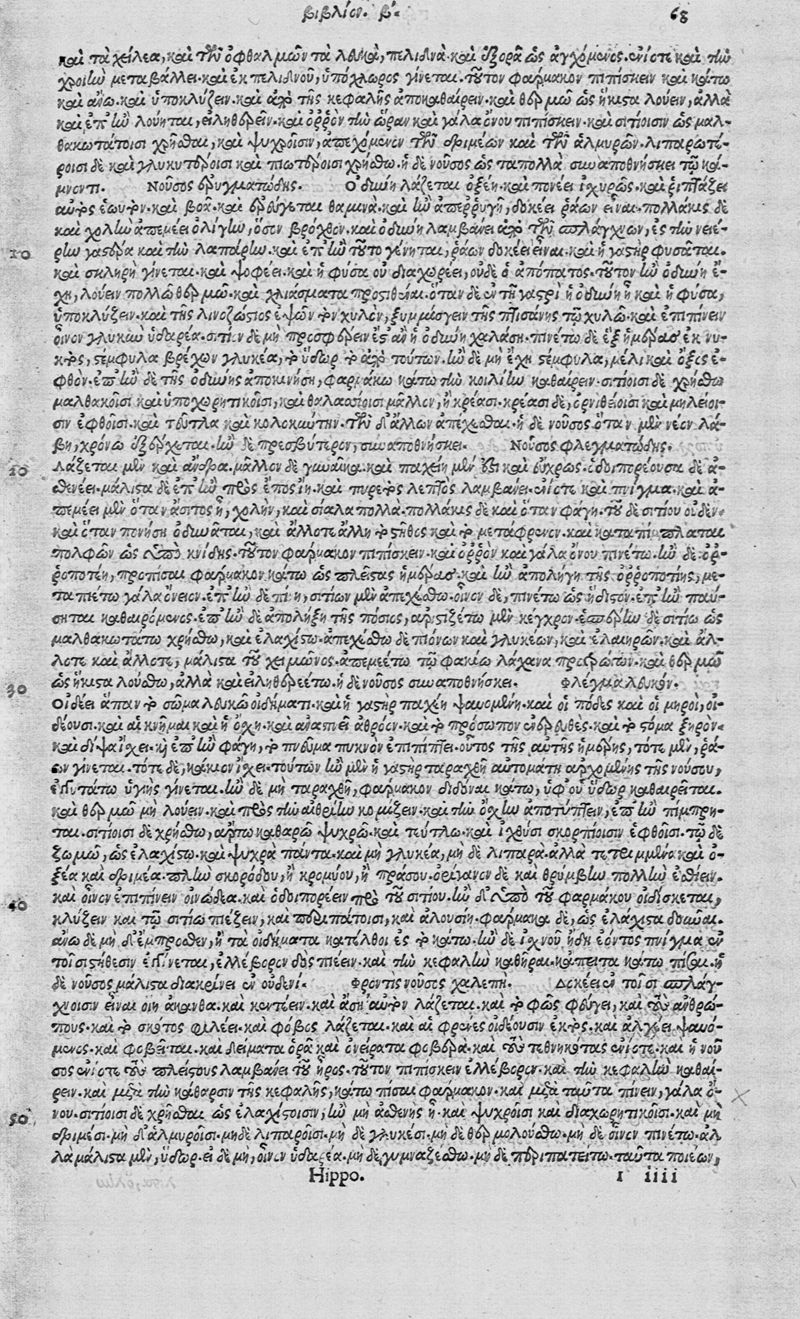 βιβλίον. β΄. 68
καὶ τὰ χείλεα, καὶ τῶν ὀφθαλμῶν τὰ λευκὰ, πελιδνά· καὶ ἐξορᾶ ὡς ἀγχόμενος· ἐνίοτε καὶ τὴν
χροιὴν μεταβάλλει· καὶ ἐκ πελιδνοῦ, ὑπόχλωρος γίνεται. τοῦτον φάρμακον πιπίσκειν καὶ κάτω
καὶ ἄνω· καὶ ὑποκλύζειν· καὶ ἀπὸ τῆς κεφαλῆς ἀποκαθαίρειν· καὶ θερμῶ ὡς ἥκιστα λούειν, ἀλλὰ
καὶ ἐπὴν λούηται, εἱληθερεῖν· καὶ ὀρρὸν τὴν ὥραν καὶ γάλα ὄνου πιπίσκειν· καὶ σιτίοισιν ὡς μαλ-
θακωτάτοισι χρῆσθαι, καὶ ψυχροῖσιν, ἀπεχόμενον τῶν δριμέων καὶ τῶν ἁλμυρῶν. λιπαρωτέ-
ροισι δὲ καὶ γλυκυτέροισι καὶ πιωτέροισι χρήσθω. ἡ δὲ νοῦσος ὡς τὰ πολλὰ συναποθνήσκει τῷ κά-
μνοντι. Νοῦσος ἐρυγματώδης. Ὀδύνη λάζεται ὀξέη· καὶ πονέει ἰσχυρῶς· καὶ ῥιπτάζει
αὐτὸς ἑωυτόν· καὶ βοᾶ· καὶ ἐρεύγεται θαμινά· καὶ ἢν ἀπερρύγῃ, δοκέει ῥάων εἶναι. πολλάκις δὲ
καὶ χολὴν ἀπεμέει ὀλίγην, ὅσον βρόχθον. καὶ ὀδύνη λαμβάνει ἀπὸ τῶν σπλάγχνων, ἐς τὴν νείε-
10 ρην γαστέρα καὶ τὴν λαπάρην· καὶ ἐπὴν τοῦτο γένηται, ῥάων δοκέει εἶναι· καὶ ἡ γαστὴρ φυσᾶται.
καὶ σκληρὴ γίνεται· καὶ ψοφέει· καὶ ἡ φῦσα οὐ διαχωρέει, οὐδὲ ὁ ἀπόπατος. τοῦτον ἢν ὀδύνη ἔ-
χῃ, λούειν πολλῶ θερμῶ· καὶ χλιάσματα προστιθέναι. ὅταν δὲ ἐν τῇ γαστρὶ ἡ ὀδύνη ᾖ καὶ ἡ φῦσα,
ὑποκλύζειν· καὶ τῆς λινοζώστιος ἕψων τὸν χυλὸν, ξυμμίσγειν τῆς πτισάνης τῷ χυλῶ· καὶ ἐπιπίνειν
οἶνον γλυκὺν ὑδαρέα. σιτίον δὲ μὴ προσφέρειν ἔς ἂν ἡ ὀδύνη χαλάσῃ. πινέτω δὲ ἓξ ἡμέρας ἐκ νυ-
κτὸς, στέμφυλα βρέχων γλυκέα, τὸ ὕδωρ τὸ ἀπὸ τούτων. ἢν δὲ μὴ ἔχῃ στέμφυλα, μέλι καὶ ὄξος ἑ-
φθόν. ἐπὴν δὲ τῆς ὀδύνης ἀποκινήσῃ, φαρμάκω κάτω τὴν κοιλίην καθαίρειν. σιτίοισι δὲ χρήσθω
μαλθακοῖσι καὶ ὑποχωρητικοῖσι, καὶ θαλασσίοισι μᾶλλον, ἢ κρέασι· κρέασι δὲ, ὀρνιθείοισι καὶ μηλείοι-
σιν ἑφθοῖσι· καὶ τεῦτλα καὶ κολοκύντην. τῶν δ' ἄλλων ἀπεχέσθω. ἡ δὲ νοῦσος ὅταν μὲν νέον λά-
βῃ, χρόνω ἐξέρχεται. ἢν δὲ πρεσβύτερον, συναποθνήσκει. Νοῦσος φλεγματώδης.
20 Λάζεται μὲν καὶ ἄνδρα. μᾶλλον δὲ γυναῖκα· καὶ παχείη μὲν ἐστι καὶ εὔχρως· ὁδοιπορέουσα δὲ ἀ-
σθενέει· μάλιστα δὲ ἐπὴν πρὸς ἔπος ἴῃ. καὶ πυρετὸς λεπτὸς λαμβάνει· ἐνίοτε καὶ πνίγμα. καὶ ἀ-
πεμέει μὲν ὅταν ἄσιτος ᾖ, χολὴν, καὶ σίαλα πολλά. πολλάκις δὲ καὶ ὅταν φάγῃ. τοῦ δὲ σιτίου οὐδέν·
καὶ ὅταν πονήσῃ ὀδυνᾶται, καὶ ἄλλοτε ἄλλῃ τὸ στῆθος καὶ τὸ μετάφρενον· καὶ καταπίμπλαται
πολφῶν ὡς ὑπὸ κνίδης. τοῦτον φάρμακον πιπίσκειν· καὶ ὀρρὸν καὶ γάλα ὄνου πινέτω. ἢν δὲ ὀρ-
ροποτέῃ, προπῖσαι φάρμακον κάτω ὡς πλείστας ἡμέρας· καὶ ἢν ἀπολήγῃ τῆς ὀρροποτίης, με-
ταπιέτω γάλα ὄνειον. ἐπὴν δὲ πίῃ, σιτίων μὲν ἀπεχέσθω. οἶνον δὲ, πινέτω ὡς ἥδιστον. ἐπὴν παύ-
σηται καθαιρόμενος. ἐπὴν δὲ ἀπολήξῃ τῆς πόσιος, ἀριστιζέτω μὲν κέγχρον. ἑσπέρην δὲ σιτίω ὡς
μαλθακωτάτω χρήσθω, καὶ ἐλαχίστω. ἀπεχέσθω δὲ πιόνων καὶ γλυκέων, καὶ ἐλαιηρῶν. καὶ ἄλ-
λοτε καὶ ἄλλοτε, μάλιστα τοῦ χειμῶνος. ἀπεμεέτω τῷ φακίω λάχανα προτρώγων. καὶ θερμῶ
30 ὡς ἥκιστα λούσθω, ἀλλὰ καὶ εἱληθερεέτω. ἡ δὲ νοῦσος συναποθνήσκει. Φλέγμα λευκόν.
Οἰδέει ἅπαν τὸ σῶμα λευκῶ οἰδήματι· καὶ ἡ γαστὴρ παχέη ψαυομένη. καὶ οἱ πόδες καὶ οἱ μηροὶ, οἰ-
δέουσι. καὶ αἱ κνῆμαι καὶ ἡ ὄσχη. καὶ ἀναπνέει ἀθρόον· καὶ τὸ πρόσωπον ἐνερευθές· καὶ τὸ στόμα ξηρόν·
καὶ δίψα ἴσχει· καὶ ἐπὴν φάγῃ, τὸ πνεῦμα πυκνὸν ἐπιπίπτει. οὗτος τῆς αὐτῆς ἡμέρης, τότε μὲν, ῥά-
ων γίνεται. τότε δὲ, κάκιον ἴσχει. τούτων ἢν μὲν ἡ γαστὴρ ταραχθῇ αὐτομάτη ἀρχομένης τῆς νούσου,
ἐγγυτάτω ὑγιὴς γίνεται. ἢν δὲ μὴ ταραχθῇ, φάρμακον διδόναι κάτω, ὑφ' οὗ ὕδωρ καθαιρεῖται.
καὶ θερμῶ μὴ λούειν. καὶ πρὸς τὴν αἰθρίην κομίζειν. καὶ τὴν ὄσχην ἀποτύπτειν, ἐπὴν πίμπρη-
ται. σιτίοισι δὲ χρήσθω, ἄρτω καθαρῶ ψυχρῶ. καὶ τεύτλω. καὶ ἰχθύσι σκορπίοισιν ἑφθοῖσι. τῷ δὲ
ζωμῶ, ὡς ἐλαχίστω. καὶ ψυχρὰ πάντα. καὶ μὴ γλυκέα, μὴ δὲ λιπαρά. ἀλλὰ τετριμμένα καὶ ὀ-
ξέα καὶ δριμέα. πλὴν σκορόδου, ἢ κρομύου, ἢ πράσου. ὀρίγανον δὲ καὶ θρύμβην πολλὴν ἐσθίειν.
40 καὶ οἶνον ἐπιπίνειν οἰνώδεα. καὶ ὁδοιπορέειν πρὸ τοῦ σιτίου. ἢν δ' ὑπὸ τοῦ φαρμάκου οἰδίσκεται,
κλύζειν καὶ τῷ σιτίω πιέζειν, καὶ περιπάτοισι, καὶ ἀλουσίῃ. φάρμακα δὲ, ὡς ἐλάχιστα δοῦναι.
ἄνω δὲ μὴ δ' ἔμπροσθεν, ἢ τὰ οἰδήματα κατέλθοι ἐς τὸ κάτω. ἢν δὲ ἰσχνοῦ ἤδη ἐόντος πνίγμα ἐν
τοῖσι στήθεσιν ἐγγίνεται, ἐλλέβορον δὸς πιέειν. καὶ τὴν κεφαλὴν καθῆραι. κἄπειτα κάτω πῖσαι. ἡ
δὲ νοῦσος μάλιστα διακρίνει ἐν οὐδενί. Φροντὶς νοῦσος χαλεπή. Δοκέει ἐν τοῖσι σπλάγ-
χνοισιν εἶναι οἵη ἄκανθα. καὶ κεντέειν. καὶ ἄση αὐτὸν λάζεται. καὶ τὸ φῶς φεύγει, καὶ τοὺς ἀνθρώ-
πους. καὶ τὸ σκότος φιλέει. καὶ φόβος λάζεται. καὶ αἱ φρένες οἰδέουσιν ἐκτός. καὶ ἀλγέει ψαυό-
μενος. καὶ φοβεῖται. καὶ δείματα ὁρᾶ καὶ ὀνείρατα φοβερά. καὶ τοὺς τεθνηκότας ἐνίοτε. καὶ ἡ νοῦ-
σος ἐνίοτε τοὺς πλείστους λαμβάνει τοῦ ἦρος. τοῦτον πιπίσκειν ἐλλέβορον. καὶ τὴν κεφαλὴν καθαί-
ρειν. καὶ μετὰ τὴν κάθαρσιν τῆς κεφαλῆς, κάτω πῖσαι φάρμακον. καὶ μετὰ ταῦτα πίνειν, γάλα ὄ-
50 νου. σιτίοισι δὲ χρῆσθαι ὡς ἐλαχίστοισιν, ἢν μὴ ἀσθενὴς ᾖ. καὶ ψυχροῖσι καὶ διαχωρητικοῖσι. καὶ μὴ
δριμέσι. μὴ δ' ἁλμυροῖσι. μὴ δὲ λιπαροῖσι. μὴ δὲ γλυκέσι. μὴ δὲ θερμολούσθω. μὴ δὲ οἶνον πινέτω. ἀλ-
λὰ μάλιστα μὲν, ὕδωρ. εἰ δὲ μὴ, οἶνον ὑδαρέα. μὴ δὲ γυμναζέσθω. μὴ δὲ περιπατείτω. ταῦτα ποιέων,
Hippo. I iiii